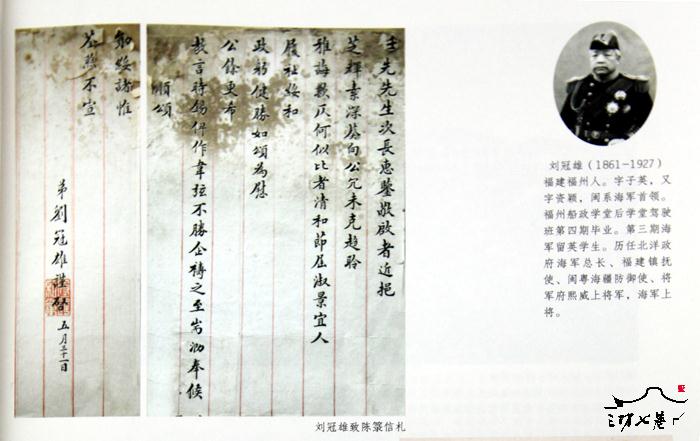 壬先先生次長惠鑒敬啟者近挹
芝輝素深慕向公冗未克趨聆
雅誨歉仄何似比者清和節屆淑景宜人
履祉綏和
政躬健勝如頌為慰
公餘更希
教言時錫俾作韋弦不勝企禱之至耑泐奉候
順頌
勛綏諸惟
荃照不宣
弟劉冠雄謹啓
五月三十一日
刘冠雄致陈箓信札
刘冠雄（1861-1927）
福建福州人。字子英，又
字资颖，闽系海军首领。
福州船政学堂后学堂驾驶
班第四期毕业。第三期海
军留英学生。历任北洋政
府海军总长、福建镇抚
使、闽粤海疆防御使、将
军府熙威上将军，海军上
将。
三坊七巷